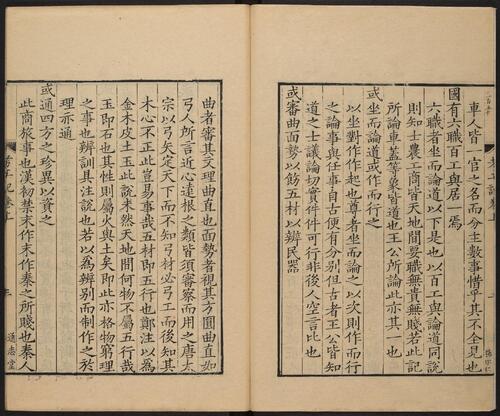 車人皆一官之名而分主數事惜乎其不全見也
國有六職百工與居一焉
六職者坐而論道以下是也以百工與論道同說
則知士農工商皆天地間要職無貴無賤若此記
所論車蓋等象皆道也王公所論此亦其一也
或坐而論道或作而行之
以坐對作作起也尊者坐而論之以次則作而行
之論事與任事自古便有分別但古者王公皆知
道之士議論切實件件可行非後人空言比也
或審曲面勢以飭五材以辨民器
曲者審其文理曲直也面勢者視其方圓曲直如
弓人所言近心遠根之類皆須審察而用之唐太
宗以弓矢定天下而不知弓材必弓工而後知其
木心不正此豈易事哉五材即五行也鄭注以為
金木皮土玉此說未然天地間何物不屬五行哉
玉即石也其性則屬火與土矣即此亦格物窮理
之事也辨訓具注說也若以為辨別而制作之於
理亦通
或通四方之珍異以資之
此商旅事也漢初禁末作末作秦之所賤也秦人
考工記卷上
通志堂